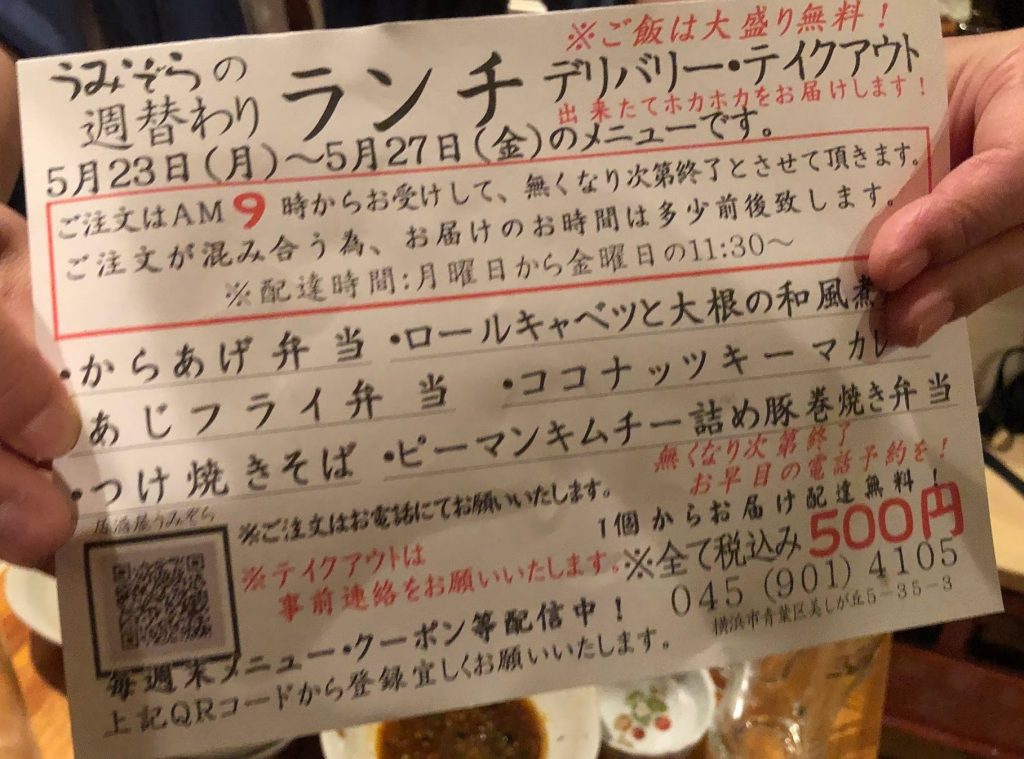 ※ご飯は大盛り無料！
うみぞらの
週替わり
ランチ
デリバリー・テイクアウト
出来たてホカホカをお届けします！
5月23日（月）～5月27日（金）のメニューです。
ご注文はAM9時からお受けして、無くなり次第終了とさせて頂きます。
ご注文が混み合う為、お届けのお時間は多少前後致します。
※配達時間：月曜日から金曜日の11:30～
・からあげ弁当 ・ロールキャベツと大根の和風煮
あじフライ弁当 ・ココナッツキーマカレ
・つけ焼きそば ・ピーマンキムチー詰め豚巻焼き弁当
無くなり次第終了
お早目の電話予約を！
居酒屋うみぞら
※ご注文はお電話にてお願いいたします。
1個からお届け配達無料！
※テイクアウトは
事前連絡をお願いいたします。
※全て税込み500円
045（901）4105
横浜市青葉区美しが丘5－35－3
毎週末メニュー・クーポン等配信中！
上記QRコードから登録宜しくお願いいたします。